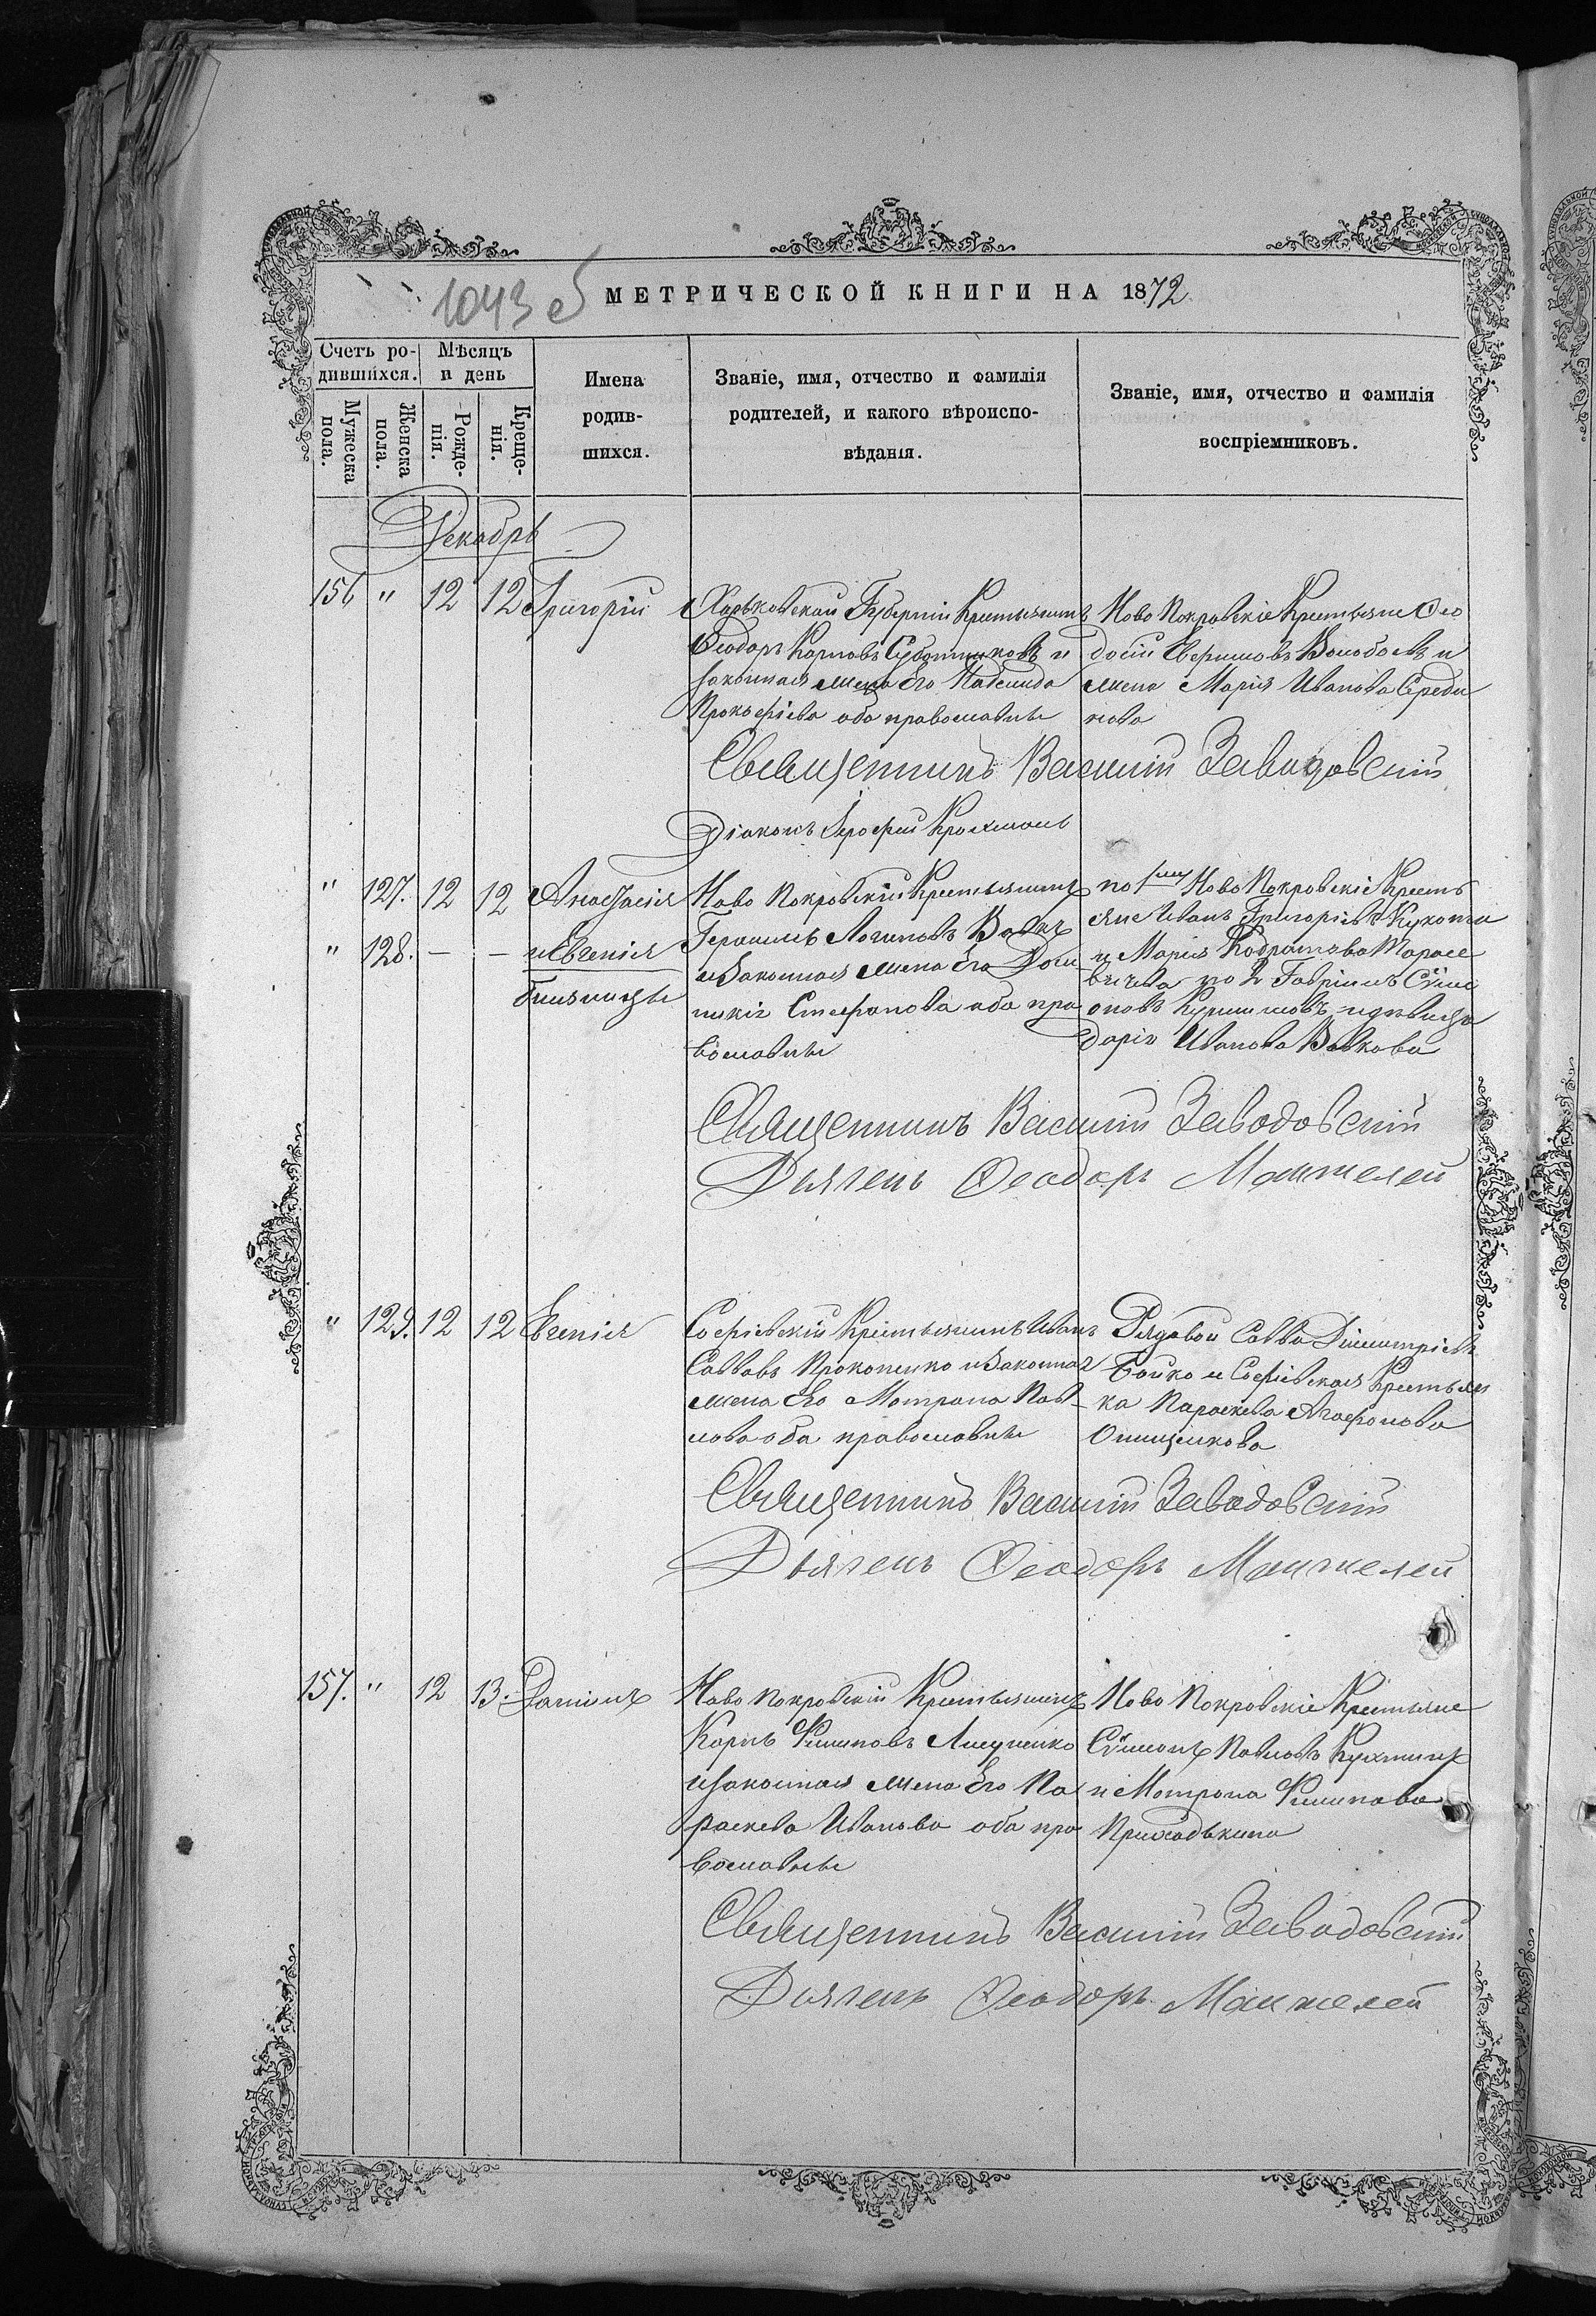 1043 об
МЕТРИЧЕСКОЙ КНИГИ НА 1872
Счетъ ро-
дившихся.
Мѣсяцъ
и день
Мужеска
пола.
Женска
пола.
Рожде-
нія.
Креще-
нія.
Имена
родив-
шихся.
Званіе, имя, отчество и фамилія
родителей, и какого вѣроиспо-
вѣданія.
Званіе, имя, отчество и фамилія
воспріемниковъ.
Декабрь
156 " 12 12 Григорій
Харьковской Губерніи Крестьянинъ
Ѳеодоръ Карповъ Суботниковъ и
законная жена Его
Прокофіева оба православные
Ново Покровскіе Крестьяне Ѳео
досій Воробьевъ и
жена Марія Иванова Среди
нова
Священникъ Василій Заводовскій
Діаконъ Ерофей Крохмаль
" 127. 12 12 Анастасія
" 128. — — и Евгенія
близницы
Ново Покровскій Крестьянинъ
Герасимъ Логиновъ Вовкъ
и Законная жена Его Дом
никія Стефанова оба пра
вославные
по 1му Ново Покровскіе Кресть
яне Иванъ Григорьевъ
и Марія Кодратова
по 2 Гавріилъ Сѵме
оновъ и дѣвица
Дарія Иванова Вовкова
Священникъ Василій Заводовскій
Дьячекъ Ѳеодоръ Манжелей
" 129. 12 12 Евгенія
Софіевскій Крестьянинъ Иванъ
Саввовъ Прокопенко и Законная
жена Его Мотрона Пав-
лова оба православные
Рядовой Савва Димитріевъ
Бойко и Софіевская Крестьян
ка Параскева Агафонова
Онищенкова
Священникъ Василій Заводовскій
Дьячекъ Ѳеодоръ Манжелей
157. " 12 13. Даніилъ
Ново Покровскій Крестьянинъ
Карпъ Филиповъ
и законная жена Его Па
раскева Иванова оба пра
вославные
Ново Покровскіе Крестьяне
Сѵмеонъ Павловъ
и Мотрона Филипова
Приходькина
Священникъ Василій Заводовскій
Дьячекъ Ѳеодоръ Манжелей